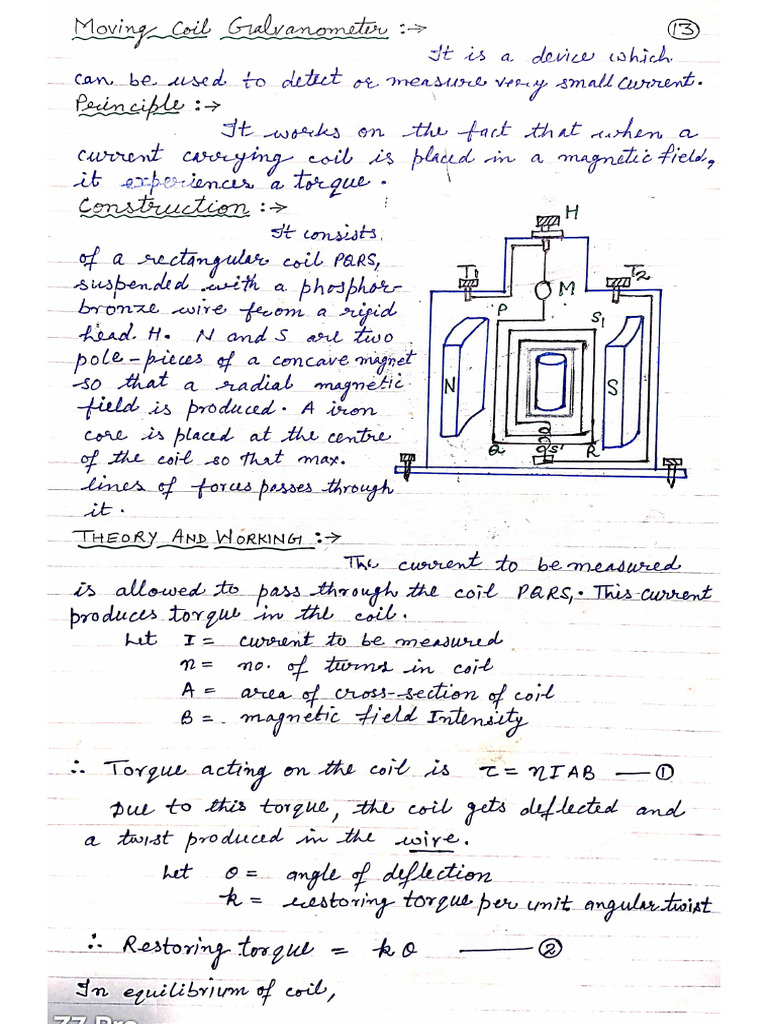 Moving Coil Galvanometer :→ 13
It is a device which
can be used to detect or measure very small current.
Principle :→
It works on the fact that when a
current carrying coil is placed in a magnetic field,
it experiences a torque.
Construction :→
It consists
of a rectangular coil PQRS,
suspended with a phosphor-
bronze wire from a rigid
head. H. N and S are two
pole-pieces of a concave magnet
so that a radial magnetic
field is produced. A iron
core is placed at the centre
of the coil so that max.
lines of forces passes through
it.
H
T1
T2
M
P
S1
N
S
Q
S'
R
THEORY AND WORKING :→
The current to be measured
is allowed to pass through the coil PQRS,. This current
produces torque in the coil.
Let I = current to be measured
n = no. of turns in coil
A = area of cross-section of coil
B = magnetic field Intensity
∴ Torque acting on the coil is τ = nIAB — ①
Due to this torque, the coil gets deflected and
a twist produced in the wire.
Let θ = angle of deflection
k = restoring torque per unit angular twist
∴ Restoring torque = kθ — ②
In equilibrium of coil,